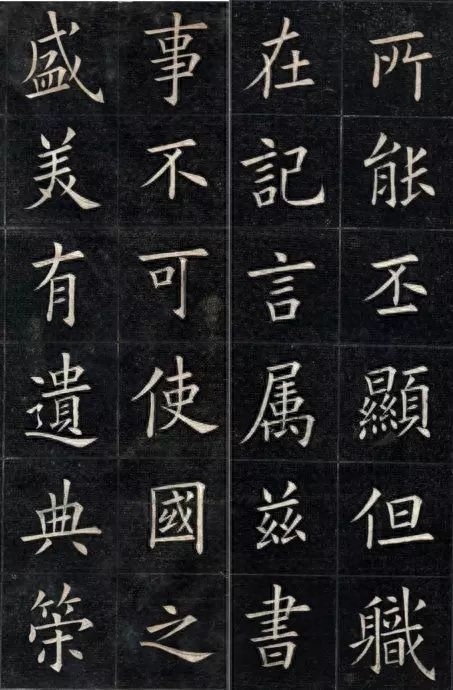 所能丕顯但軄
在記言属茲書
事不可使國之
盛美有遺典筞